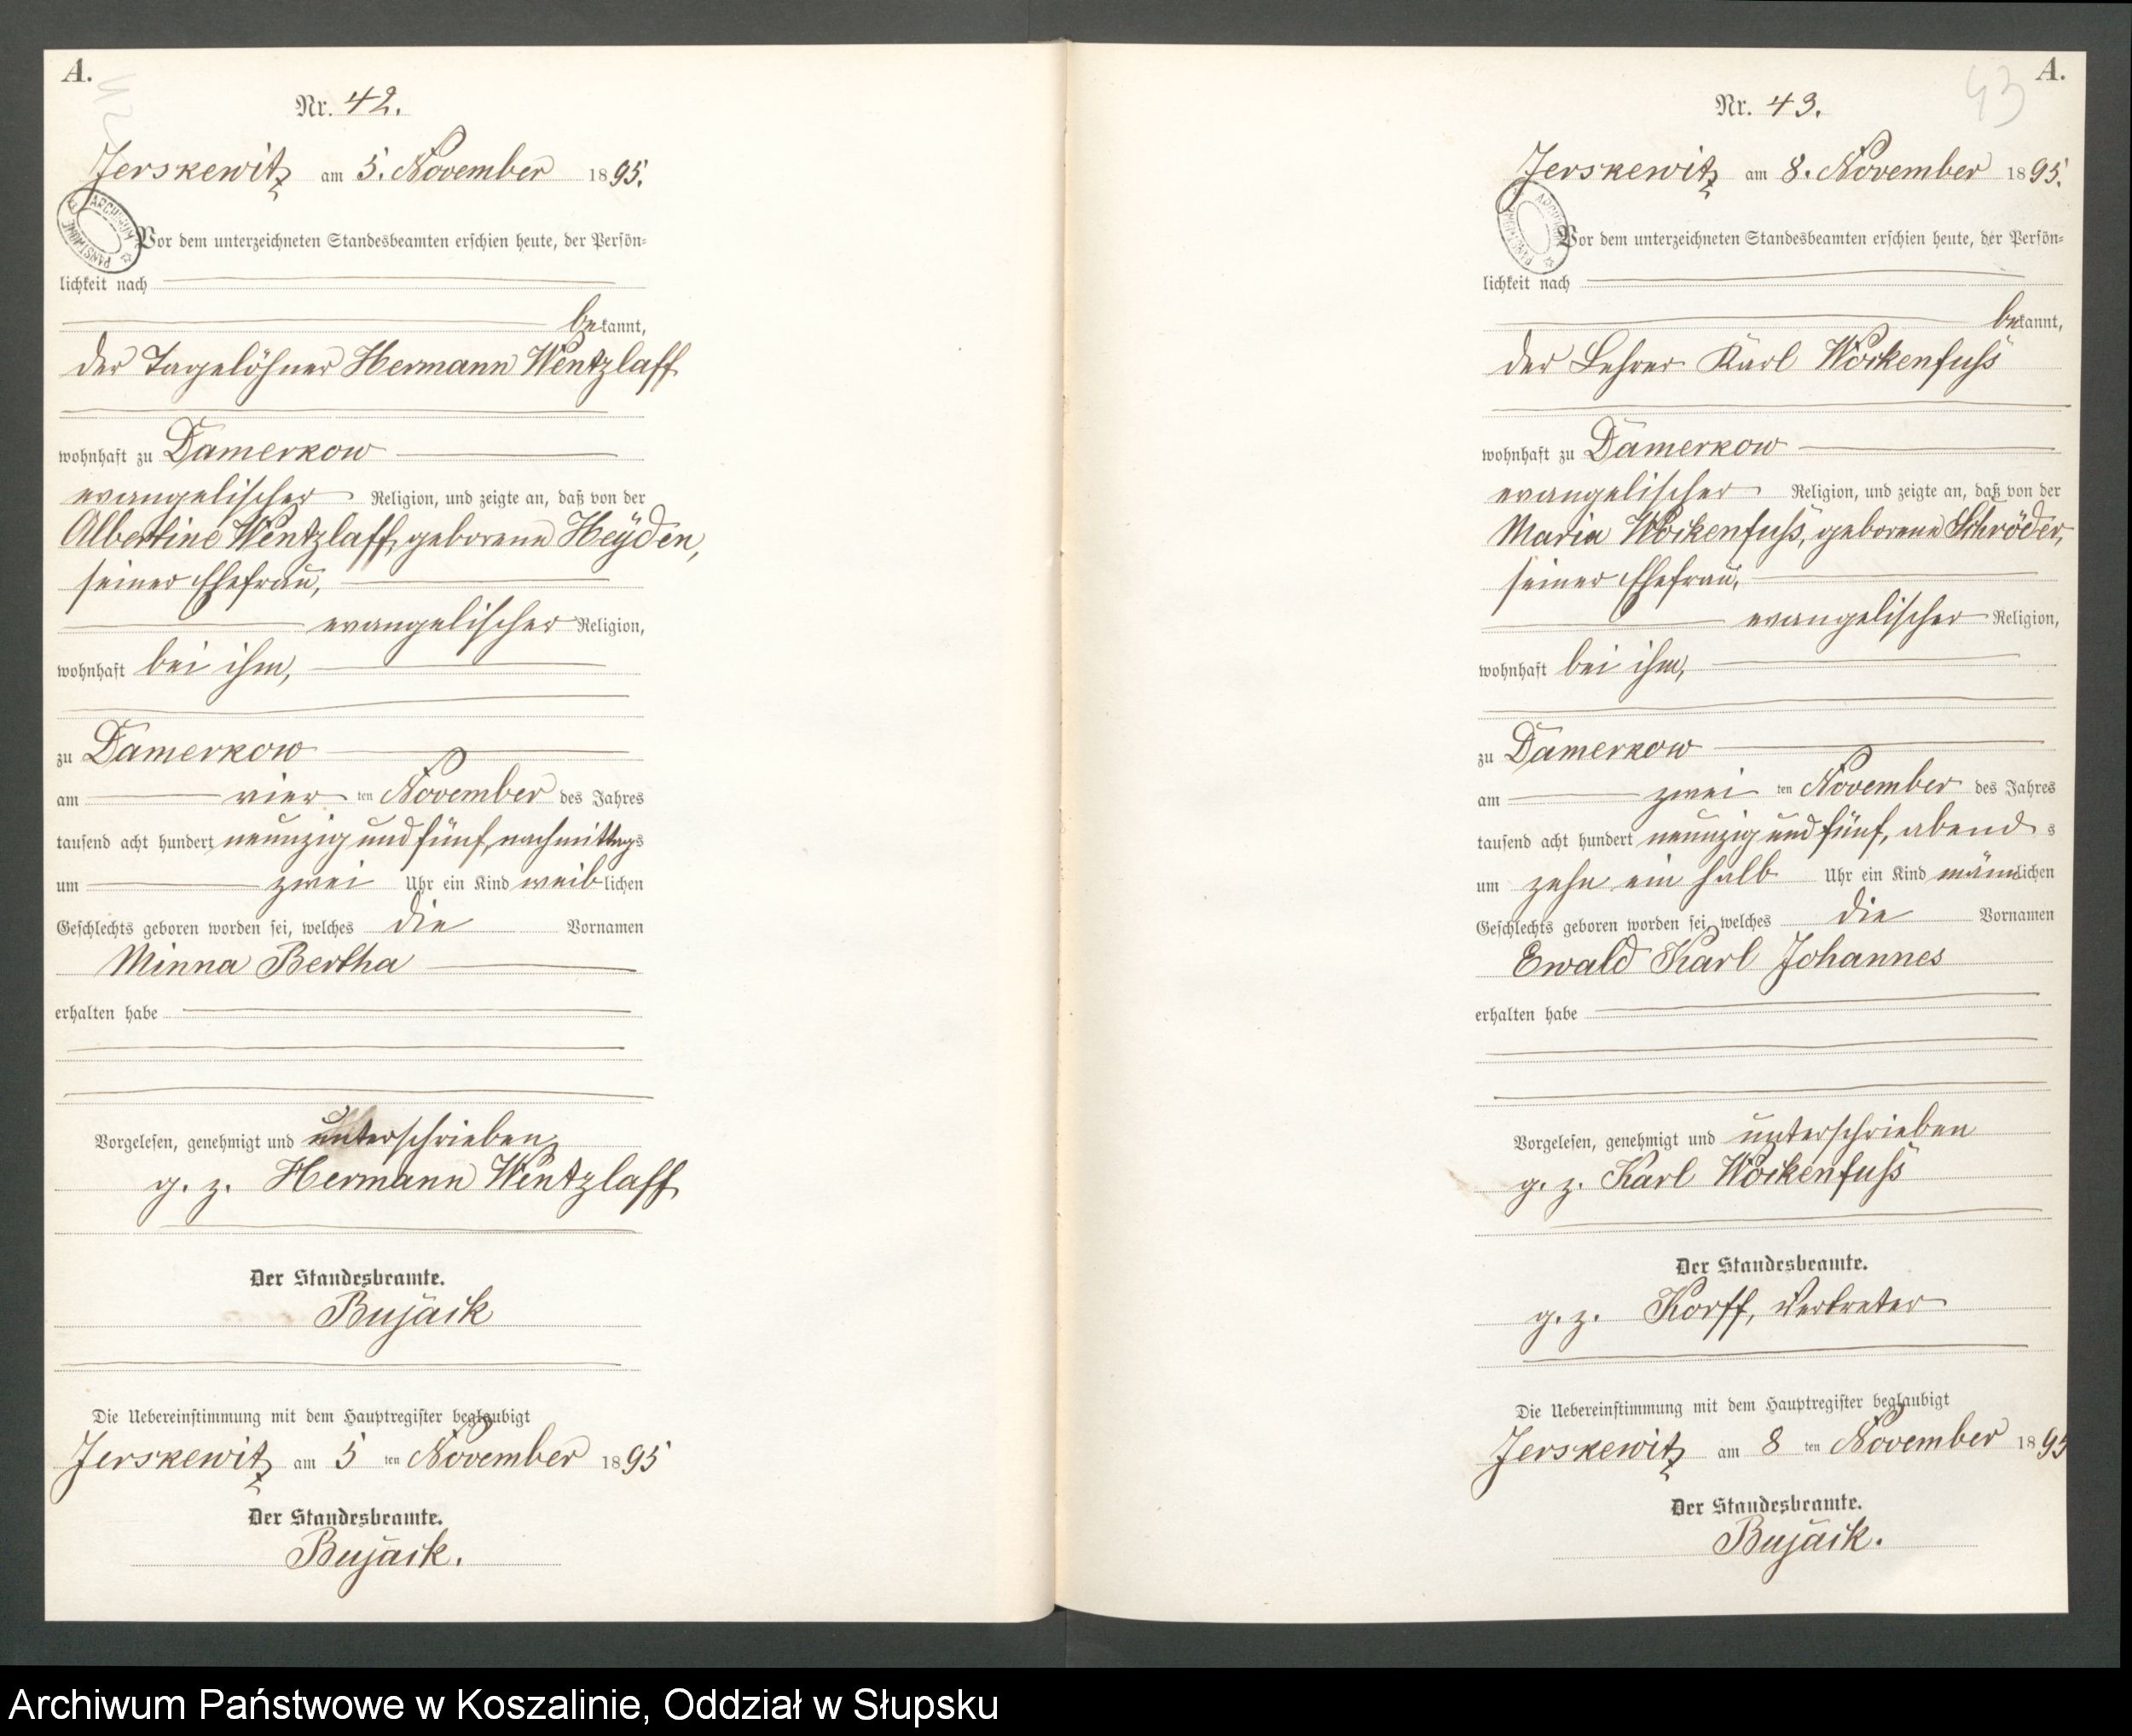 A.
42
Nr. 42.
Jerskewitz am 5. November 1895.
ARCHIWUM PAŃSTWOWE
Vor dem unterzeichneten Standesbeamten erschien heute, der Persön=
lichkeit nach
bekannt,
der Tagelöhner Hermann Wentzlaff
wohnhaft zu Damerkow
evangelischer Religion, und zeigte an, daß von der
Albertine Wentzlaff, geborene Heyden,
seiner Ehefrau,
evangelischer Religion,
wohnhaft bei ihm,
zu Damerkow
am vier ten November des Jahres
tausend acht hundert neunzig und fünf, nachmittags
um zwei Uhr ein Kind weiblichen
Geschlechts geboren worden sei, welches die Vornamen
Minna Bertha
erhalten habe
Vorgelesen, genehmigt und unterschrieben
g. z. Hermann Wentzlaff
Der Standesbeamte.
Bujack
Die Uebereinstimmung mit dem Hauptregister beglaubigt
Jerskewitz am 5 ten November 1895
Der Standesbeamte.
Bujack.
A.
43
Nr. 43.
Jerskewitz am 8. November 1895.
ARCHIWUM PAŃSTWOWE
Vor dem unterzeichneten Standesbeamten erschien heute, der Persön=
lichkeit nach
bekannt,
der Lehrer Karl Wockenfuß
wohnhaft zu Damerkow
evangelischer Religion, und zeigte an, daß von der
Maria Wockenfuß, geborene Schröder,
seiner Ehefrau,
evangelischer Religion,
wohnhaft bei ihm,
zu Damerkow
am zwei ten November des Jahres
tausend acht hundert neunzig und fünf, abends
um zehn ein halb Uhr ein Kind männlichen
Geschlechts geboren worden sei, welches die Vornamen
Ewald Karl Johannes
erhalten habe
Vorgelesen, genehmigt und unterschrieben
g. z. Karl Wockenfuß
Der Standesbeamte.
g. z. Korff, Vertreter
Die Uebereinstimmung mit dem Hauptregister beglaubigt
Jerskewitz am 8 ten November 1895
Der Standesbeamte.
Bujack.
Archiwum Państwowe w Koszalinie, Oddział w Słupsku